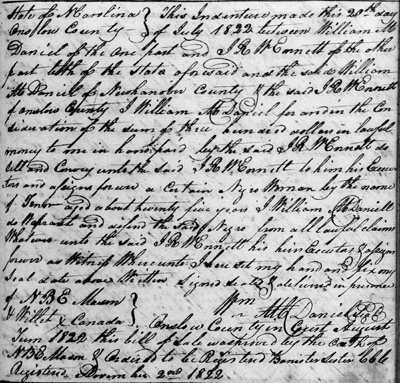 State of N Carolina } This Indenture made this 20th day
Onslow County } of July 1822 between William Mc
Daniel of the One part and J R W Ennett of the other
part both of the State aforesaid and the said William
McDaniel of Newhanover County & the said J R W Ennett
of Onslow County I William McDaniel for and in the Con
sideration of the sum of three hundred dollars in lawful
money to me in hand paid by the said J R W Ennett do
sell and Convey unto the said J R W Ennett to him his Execu
tors and assigns forever a Certain Negro Woman by the name
of aged about twenty five years I William McDaniel
do Warrant and defend the said Negro from all lawful claims
Whatever unto the said J R W Ennett his heirs Executors & assigns
forever as Witness Whereunto I have set my hand and fix my
seal date above Written signed sealed & delivered in presence
of N B E Mason } Wm McDaniel
& Willet Canada } Onslow County in Court August
Term 1822 this bill of Sale was proved by the Oath of
N B E Mason & Ordered to be Registered
Registered 2nd 1822